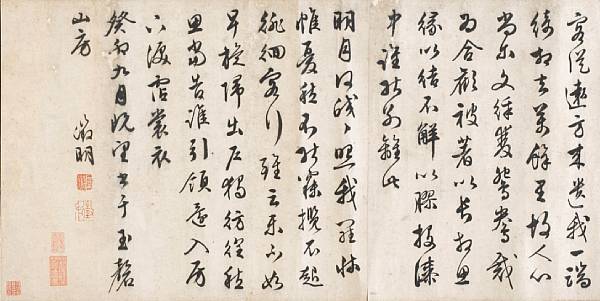 客從遠方來遺我一端
綺相去萬餘里故人心
尚尔文綵雙鴛鴦裁
為合歡被著以長相思
緣以結不解以膠投漆
中誰能別離此
明月何皎皎照我羅牀
幃憂愁不能寐攬衣起
徘徊客行雖云樂不如
早旋歸出戶獨彷徨愁
思當告誰引領還入房
下淚霑裳衣
癸卯九月既望書于玉磬
山房
徵明